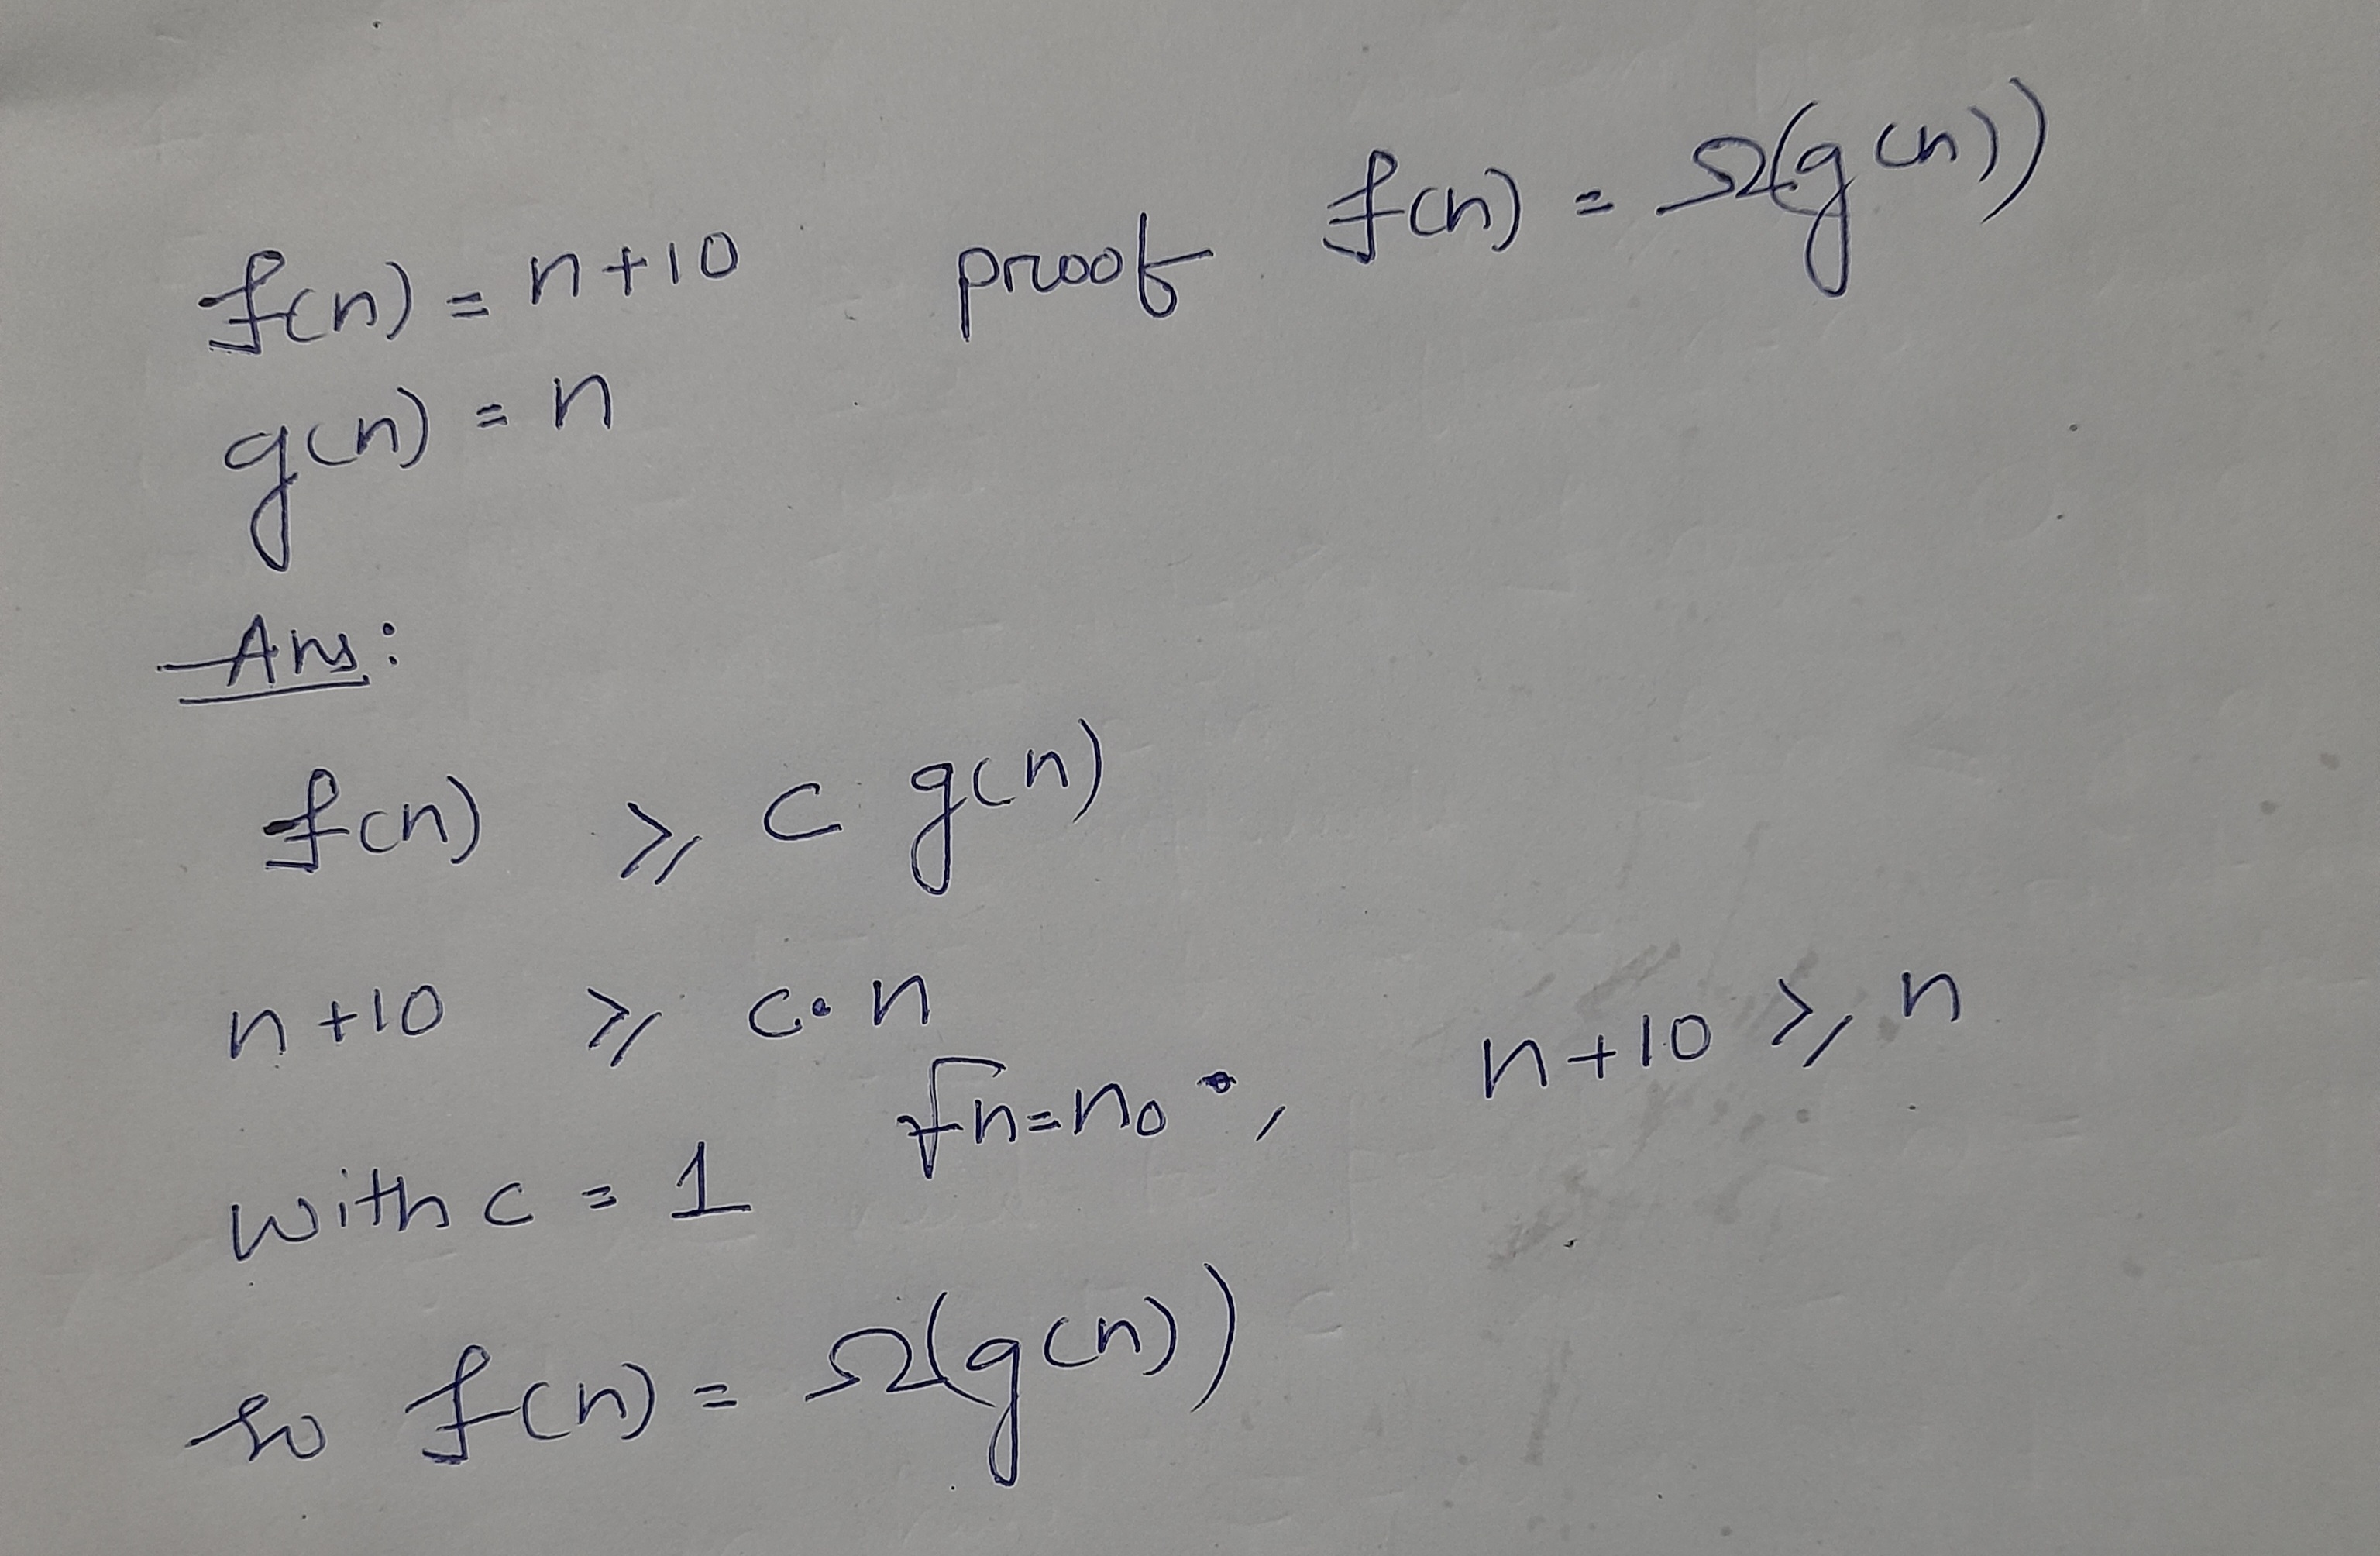 f(n) = n+10 proof f(n) = Ω(g(n))
g(n) = n
Ans:
f(n) ≥ c g(n)
n+10 ≥ c·n
with c = 1 fn=n₀, n+10 ≥ n
so f(n) = Ω(g(n))